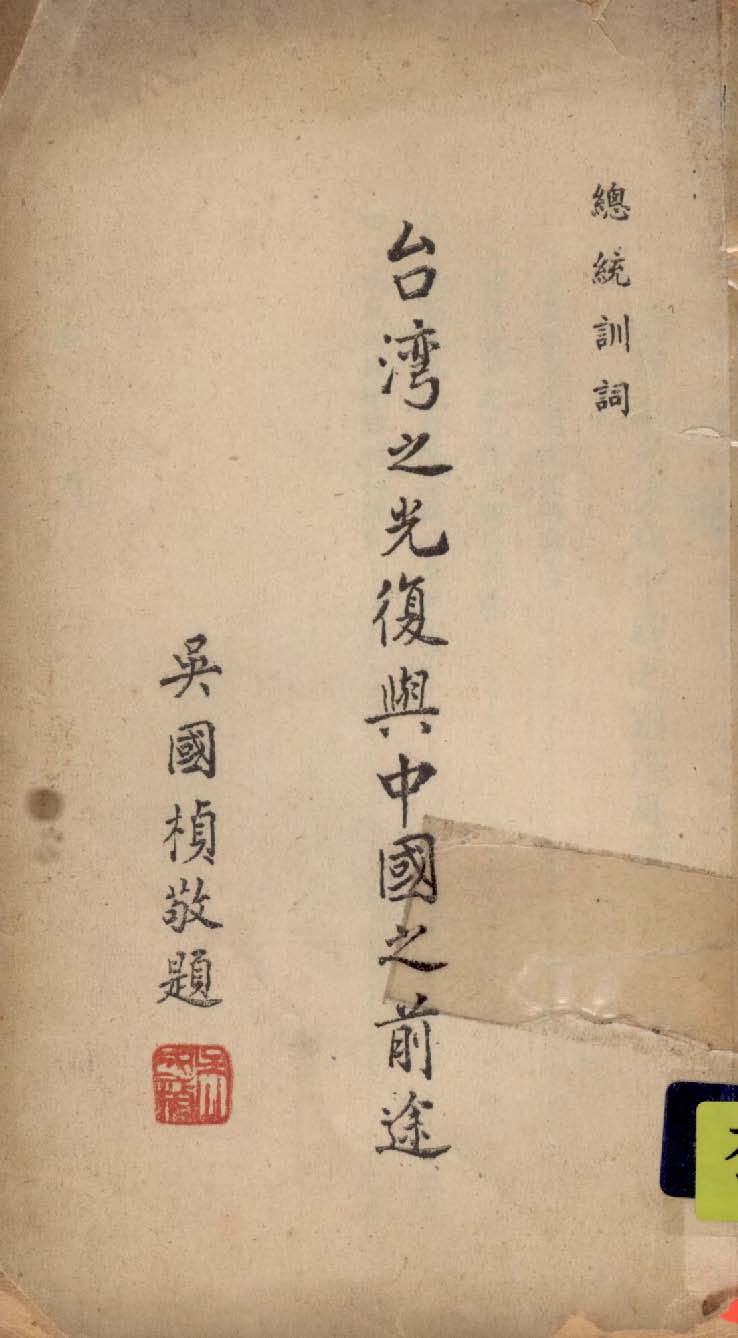 總統訓詞
台湾之光復與中國之前途
吳國楨敬題